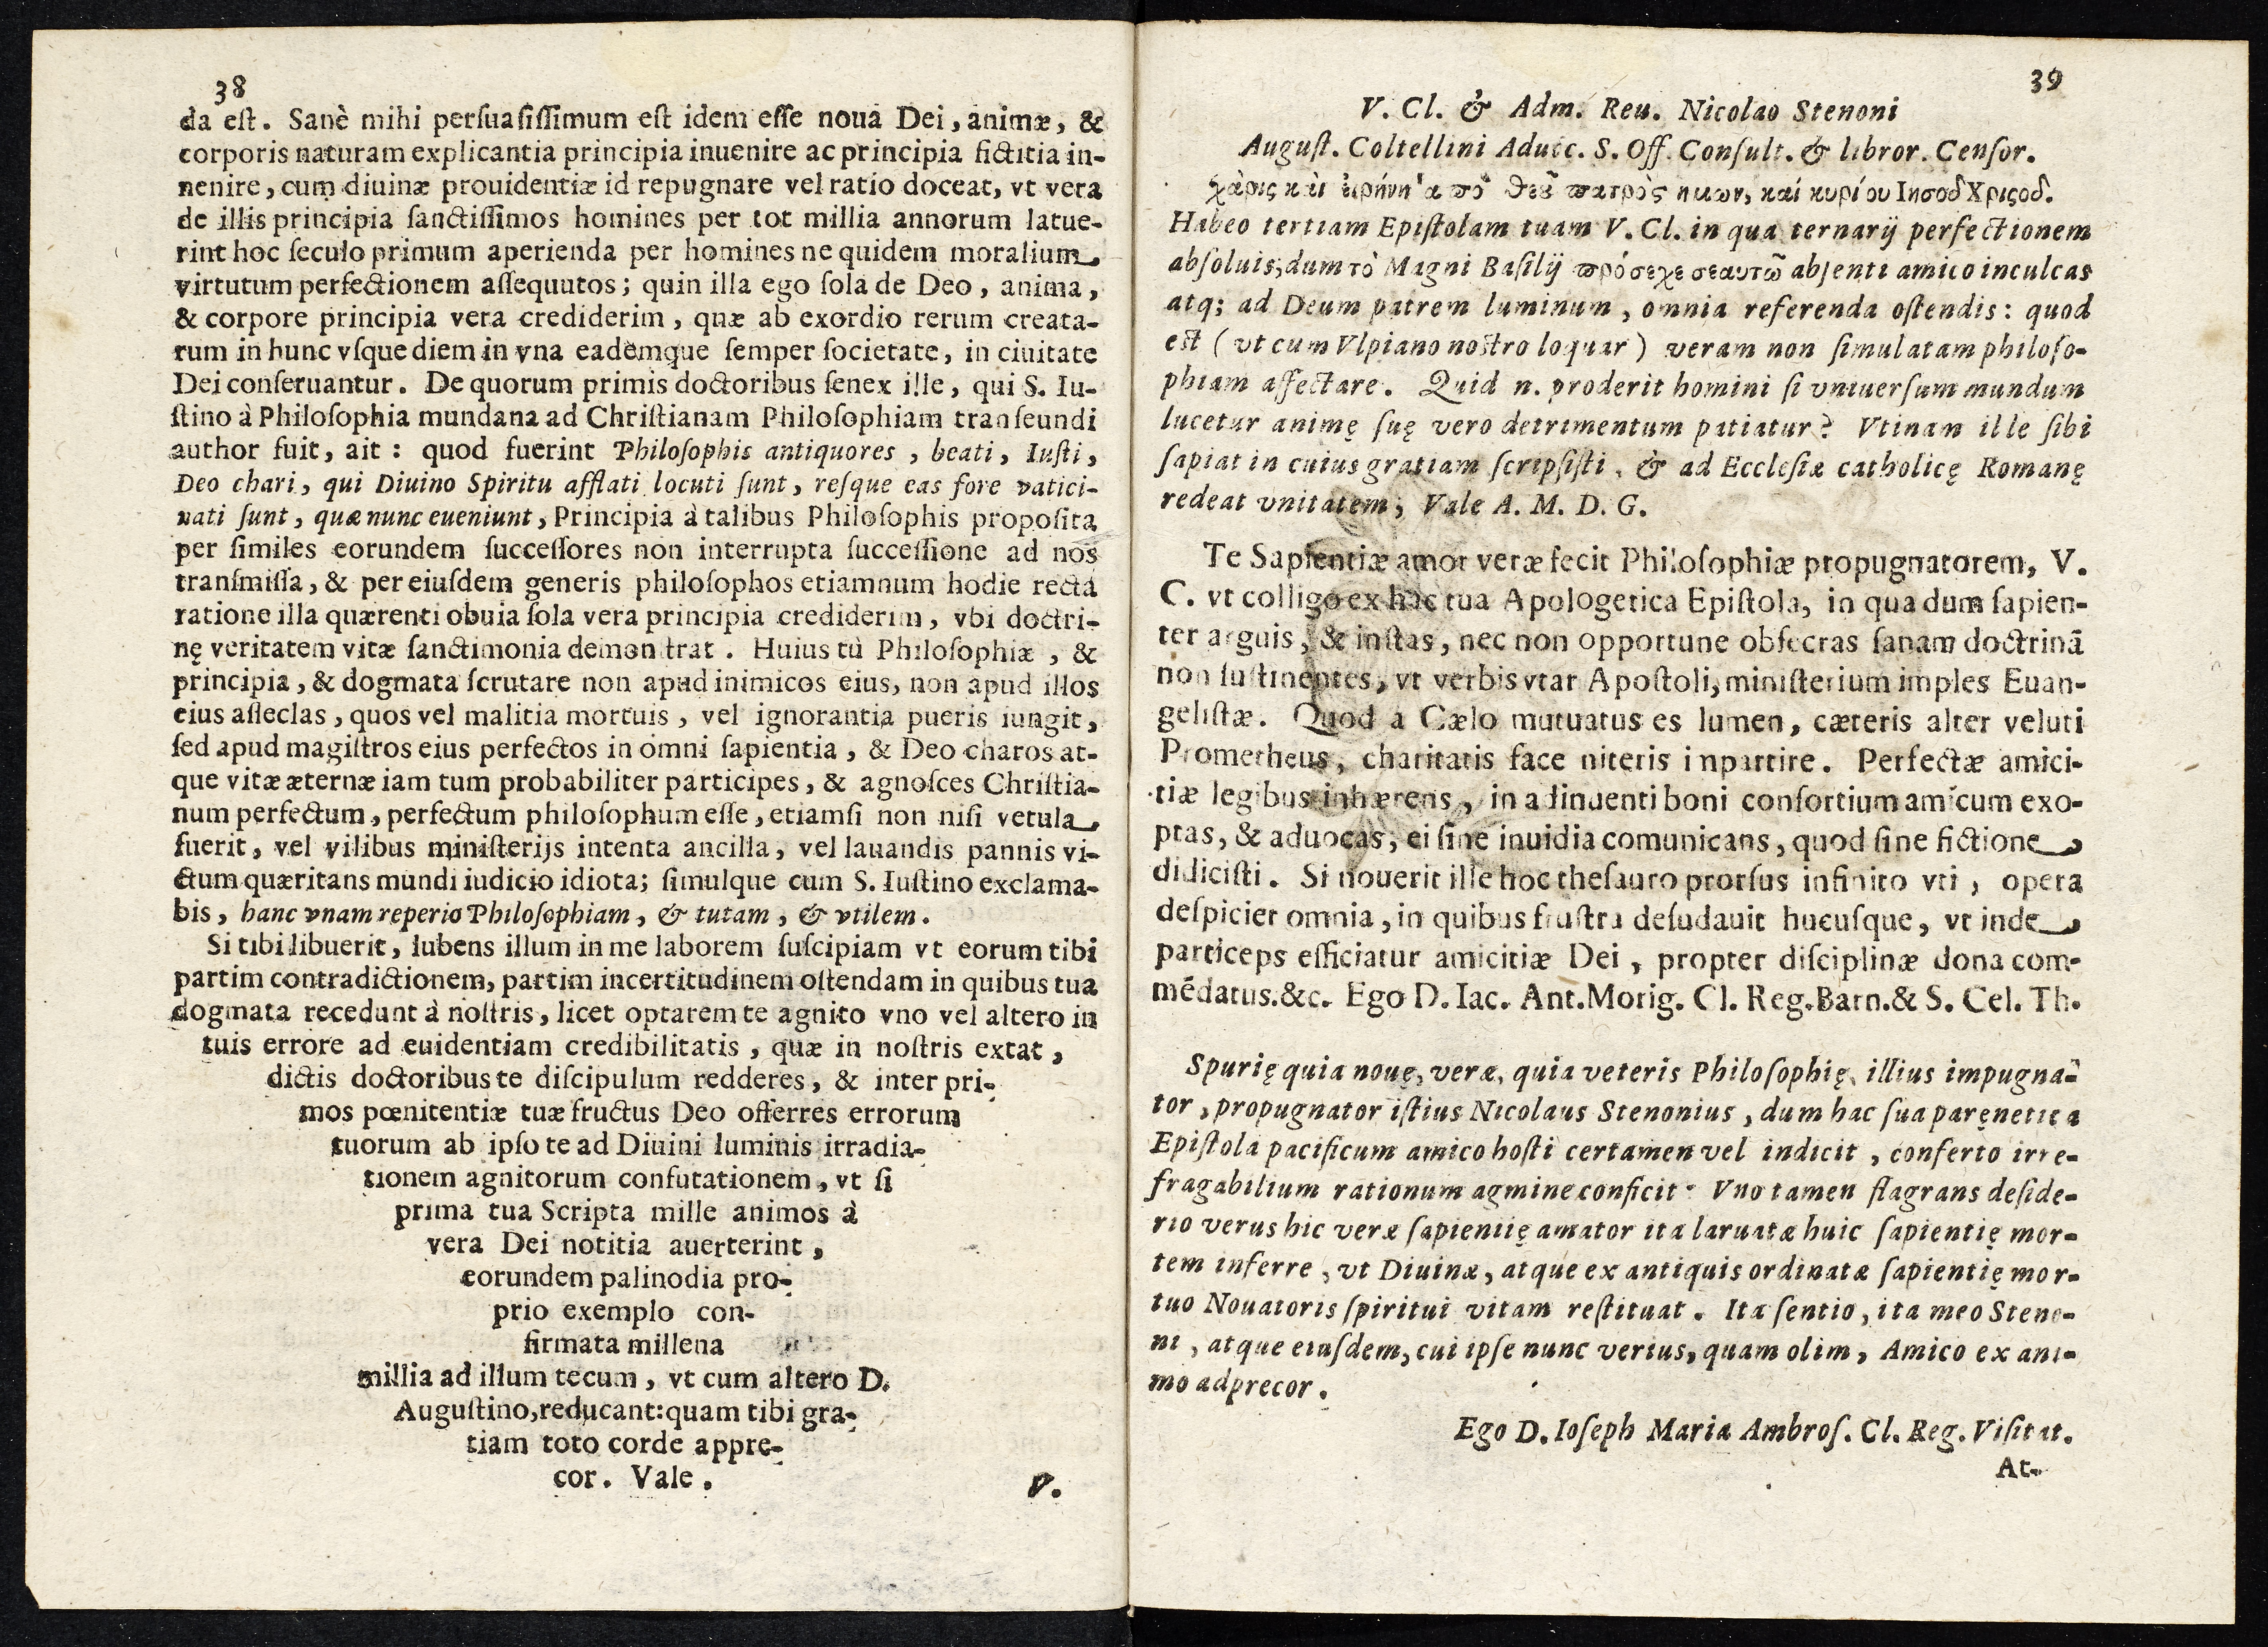 38
da est. Sanè mihi persuasissimum est idem esse noua Dei, animæ, &
corporis naturam explicantia principia inuenire ac principia fictitia in-
nenire, cum diuinæ prouidentiæ id repugnare vel ratio doceat, vt vera
de illis principia sanctissimos homines per tot millia annorum latue-
rint hoc seculo primum aperienda per homines ne quidem moralium
virtutum perfectionem assequutos; quin illa ego sola de Deo, anima,
& corpore principia vera crediderim, quæ ab exordio rerum creata-
rum in hunc vsque diem in vna eademque semper societate, in ciuitate
Dei conseruantur. De quorum primis doctoribus senex ille, qui S. Iu-
stino à Philosophia mundana ad Christianam Philosophiam transeundi
author fuit, ait: quod fuerint Philosophis antiquores, beati, Iusti,
Deo chari, qui Diuino Spiritu afflati locuti sunt, resque eas fore vatici-
nati sunt, quæ nunc eueniunt, Principia à talibus Philosophis proposita
per similes eorundem successores non interrupta successione ad nos
transmissa, & per eiusdem generis philosophos etiamnum hodie recta
ratione illa quærenti obuia sola vera principia crediderim, vbi doctri-
nę veritatem vitæ sanctimonia demon trat. Huius tù Philosophiæ, &
principia, & dogmata scrutare non apud inimicos eius, non apud illos
eius asseclas, quos vel malitia mortuis, vel ignorantia pueris iungit,
sed apud magistros eius perfectos in omni sapientia, & Deo charos at-
que vitæ æternæ iam tum probabiliter participes, & agnosces Christia-
num perfectum, perfectum philosophum esse, etiamsi non nisi vetula
fuerit, vel vilibus ministerijs intenta ancilla, vel lauandis pannis vi-
ctum quæritans mundi iudicio idiota; simulque cum S. Iustino exclama-
bis, hanc vnam reperio Philosophiam, & tutam, & vtilem.
Si tibi libuerit, lubens illum in me laborem suscipiam vt eorum tibi
partim contradictionem, partim incertitudinem ostendam in quibus tua
dogmata recedunt à nostris, licet optarem te agnito vno vel altero in
tuis errore ad euidentiam credibilitatis, quæ in nostris extat,
dictis doctoribus te discipulum redderes, & inter pri-
mos pœnitentiæ tuæ fructus Deo offerres errorum
tuorum ab ipso te ad Diuini luminis irradia-
tionem agnitorum confutationem, vt si
prima tua Scripta mille animos à
vera Dei notitia auerterint,
eorundem palinodia pro-
prio exemplo con-
firmata millena
millia ad illum tecum, vt cum altero D.
Augustino, reducant: quam tibi gra-
tiam toto corde appre-
cor. Vale.
V.
39
V. Cl. & Adm. Reu. Nicolao Stenoni
August. Coltellini Aduoc. S. Off. Consult. & libror. Censor.
χάρις καὶ εἰρήνη ἀ πὸ θεοῦ πατρὸς ημων, καί κυρίου Ιησοῦ Χριςοῦ.
Habeo tertiam Epistolam tuam V. Cl. in qua ternarij perfectionem
absoluis; dum τὸ Magni Basilij πρόσεχε σεαυτῶ absenti amico inculcas
atq; ad Deum patrem luminum, omnia referenda ostendis: quod
est (vt cum Vlpiano nostro loquar) veram non simulatam philoso-
phiam affectare. Quid n. proderit homini si vniuersum mundum
lucetur animę suę vero detrimentum patiatur? Vtinam ille sibi
sapiat in cuius gratiam scripsisti, & ad Ecclesiæ catholicę Romanę
redeat vnitatem; Vale A. M. D. G.
Te Sapientiæ amor veræ fecit Philosophiæ propugnatorem, V.
C. vt colligo ex hac tua Apologetica Epistola, in qua dum sapien-
ter arguis, & instas, nec non opportune obsecras sanam doctrinã
non sustinentes, vt verbis vtar Apostoli, ministerium imples Euan-
gelistæ. Quod a Cælo mutuatus es lumen, cæteris alter veluti
Prometheus, charitatis face niteris inpartire. Perfectæ amici-
tiæ legibus inhærens, in adinuenti boni consortium amicum exo-
ptas, & aduocas, ei sine inuidia comunicans, quod sine fictione
didicisti. Si nouerit ille hoc thesauro prorsus infinito vti, opera
despiciet omnia, in quibus frustra desudauit hucusque, vt inde
particeps efficiatur amicitiæ Dei, propter disciplinæ dona com-
mẽdatus.&c. Ego D. Iac. Ant. Morig. Cl. Reg. Barn. & S. Cel. Th.
Spurię quia nouę, veræ, quia veteris Philosophię, illius impugna-
tor, propugnator istius Nicolaus Stenonius, dum hac sua parenetica
Epistola pacificum amico hosti certamen vel indicit, conferto irre-
fragabilium rationum agmine conficit: Vno tamen flagrans deside-
rio verus hic veræ sapientię amator ita laruatæ huic sapientię mor-
tem inferre, vt Diuinæ, atque ex antiquis ordinatæ sapientię mor-
tuo Nouatoris spiritui vitam restituat. Ita sentio, ita meo Steno-
ni, atque eiusdem, cui ipse nunc verius, quam olim, Amico ex ani-
mo adprecor.
Ego D. Ioseph Maria Ambros. Cl. Reg. Visitat.
At-